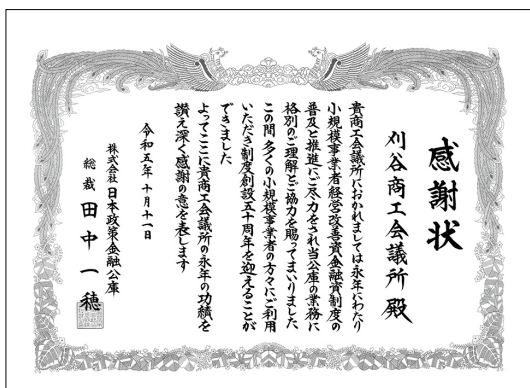 感謝状
刈谷商工会議所 殿
貴商工会議所におかれましては永年にわたり
小規模事業者経営改善資金融資制度の
普及と推進にご尽力をされ当公庫の業務に
格別のご理解とご協力を賜ってまいりました
この間 多くの小規模事業者の方々にご利用
いただき制度創設五十周年を迎えることが
できました
よってここに貴商工会議所の永年の功績を
讃え深く感謝の意を表します
令和五年十月十一日
株式会社 日本政策金融公庫
総裁 田中一穂